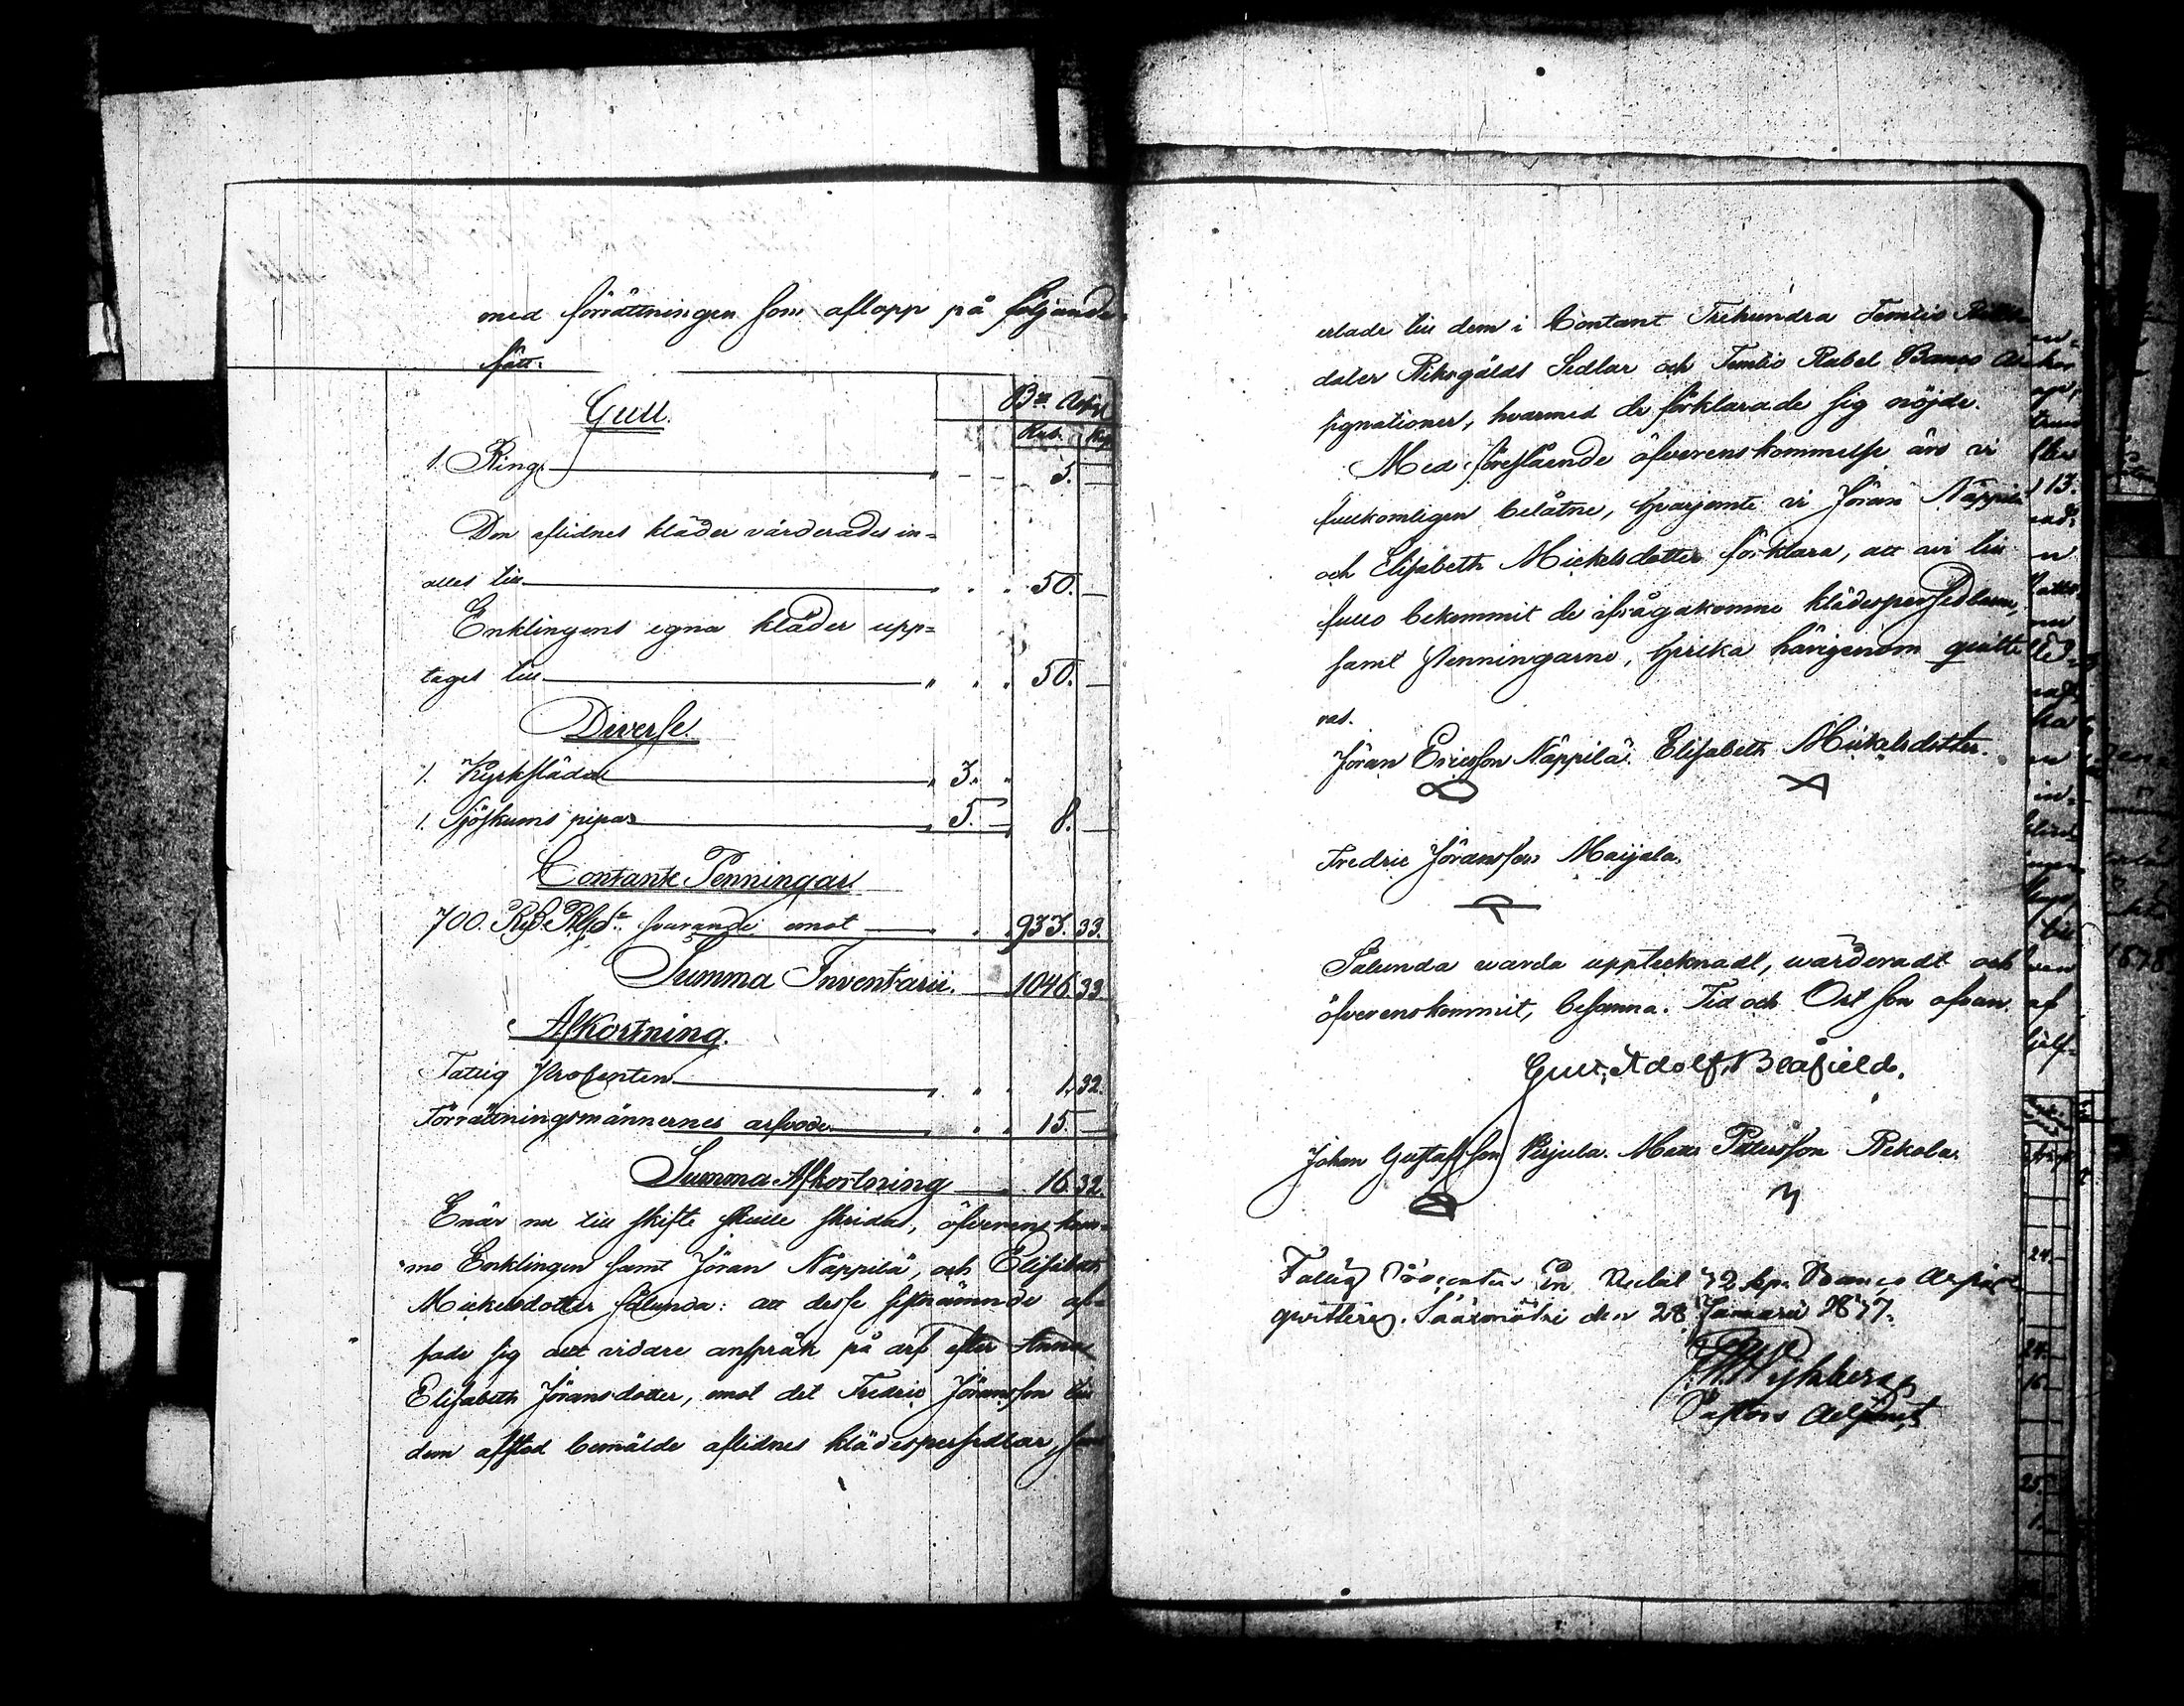 med förrättningen som aflopp på följande
sätt.
Bco Assign
Gull.
Rub. Kop
1. Ring 5. —
Den aflidnes kläder värderades in-
alles till " " " 50. —
Enklingens egna kläder upp-
taget till " " " 50. —
Diverse.
1. Kyrksläda " 3. "
1. Sjöskums pipa " 5. — 8. —
Contante Penningar
700. RD. RGS. svarande emot " " " 933. 33.
Summa Inventarii. 1046. 33
Afkortning.
Fattig Procenten " " " 1. 32.
Förrättningsmännernes arfvode " " " 15. —
Summa Afkortning 16. 32.
Enär nu till skifte skulle skridas, öfverens kom-
mo Enklingen samt Jöran Näppilä, och Elisabeth
Mickelsdotter sålunda: att desse sistnämnde af-
sade sig allt vidare anspråk på arf efter Anna
Elisabeth Jöransdotter, emot det Fredric Jöransson till
dem afstod bemälde aflidnes klädespersedlar,
erlade till dem i Contant Trehundra Femtio Riks
daler Riksgälds Sedlar och Femtio Rubel Banco As
signationer, hvarmed de förklarade sig nöjde.
Med förestående öfverenskommelse äro vi
fullkomligen belåtne, hvarjemte vi Jöran Näppilä
och Elisabeth Mickelsdotter förklara, att vi till
fullo bekommit de ifrågakomne klädespersedlarne,
samt penningarne, hvilka härigenom quitte
ras.
Jöran Ericsson Näppilä. Elisabeth Mickelsdotter.
Fredric Jöransson Maijala.
Sålunda varda upptecknadt, värderadt och
öfverenskommit, besanna. Tid och Ort som ofvan.
Gust. Adolf. Blåfield.
Johan Gustafsson Pirjula. Matts Pettersson Rekola.
Fattig Procenten En Rubel 32 kop. Banco Assign
quitteras. Sääxmäki den 28 Januarii 1837.
Pastors Adjunct